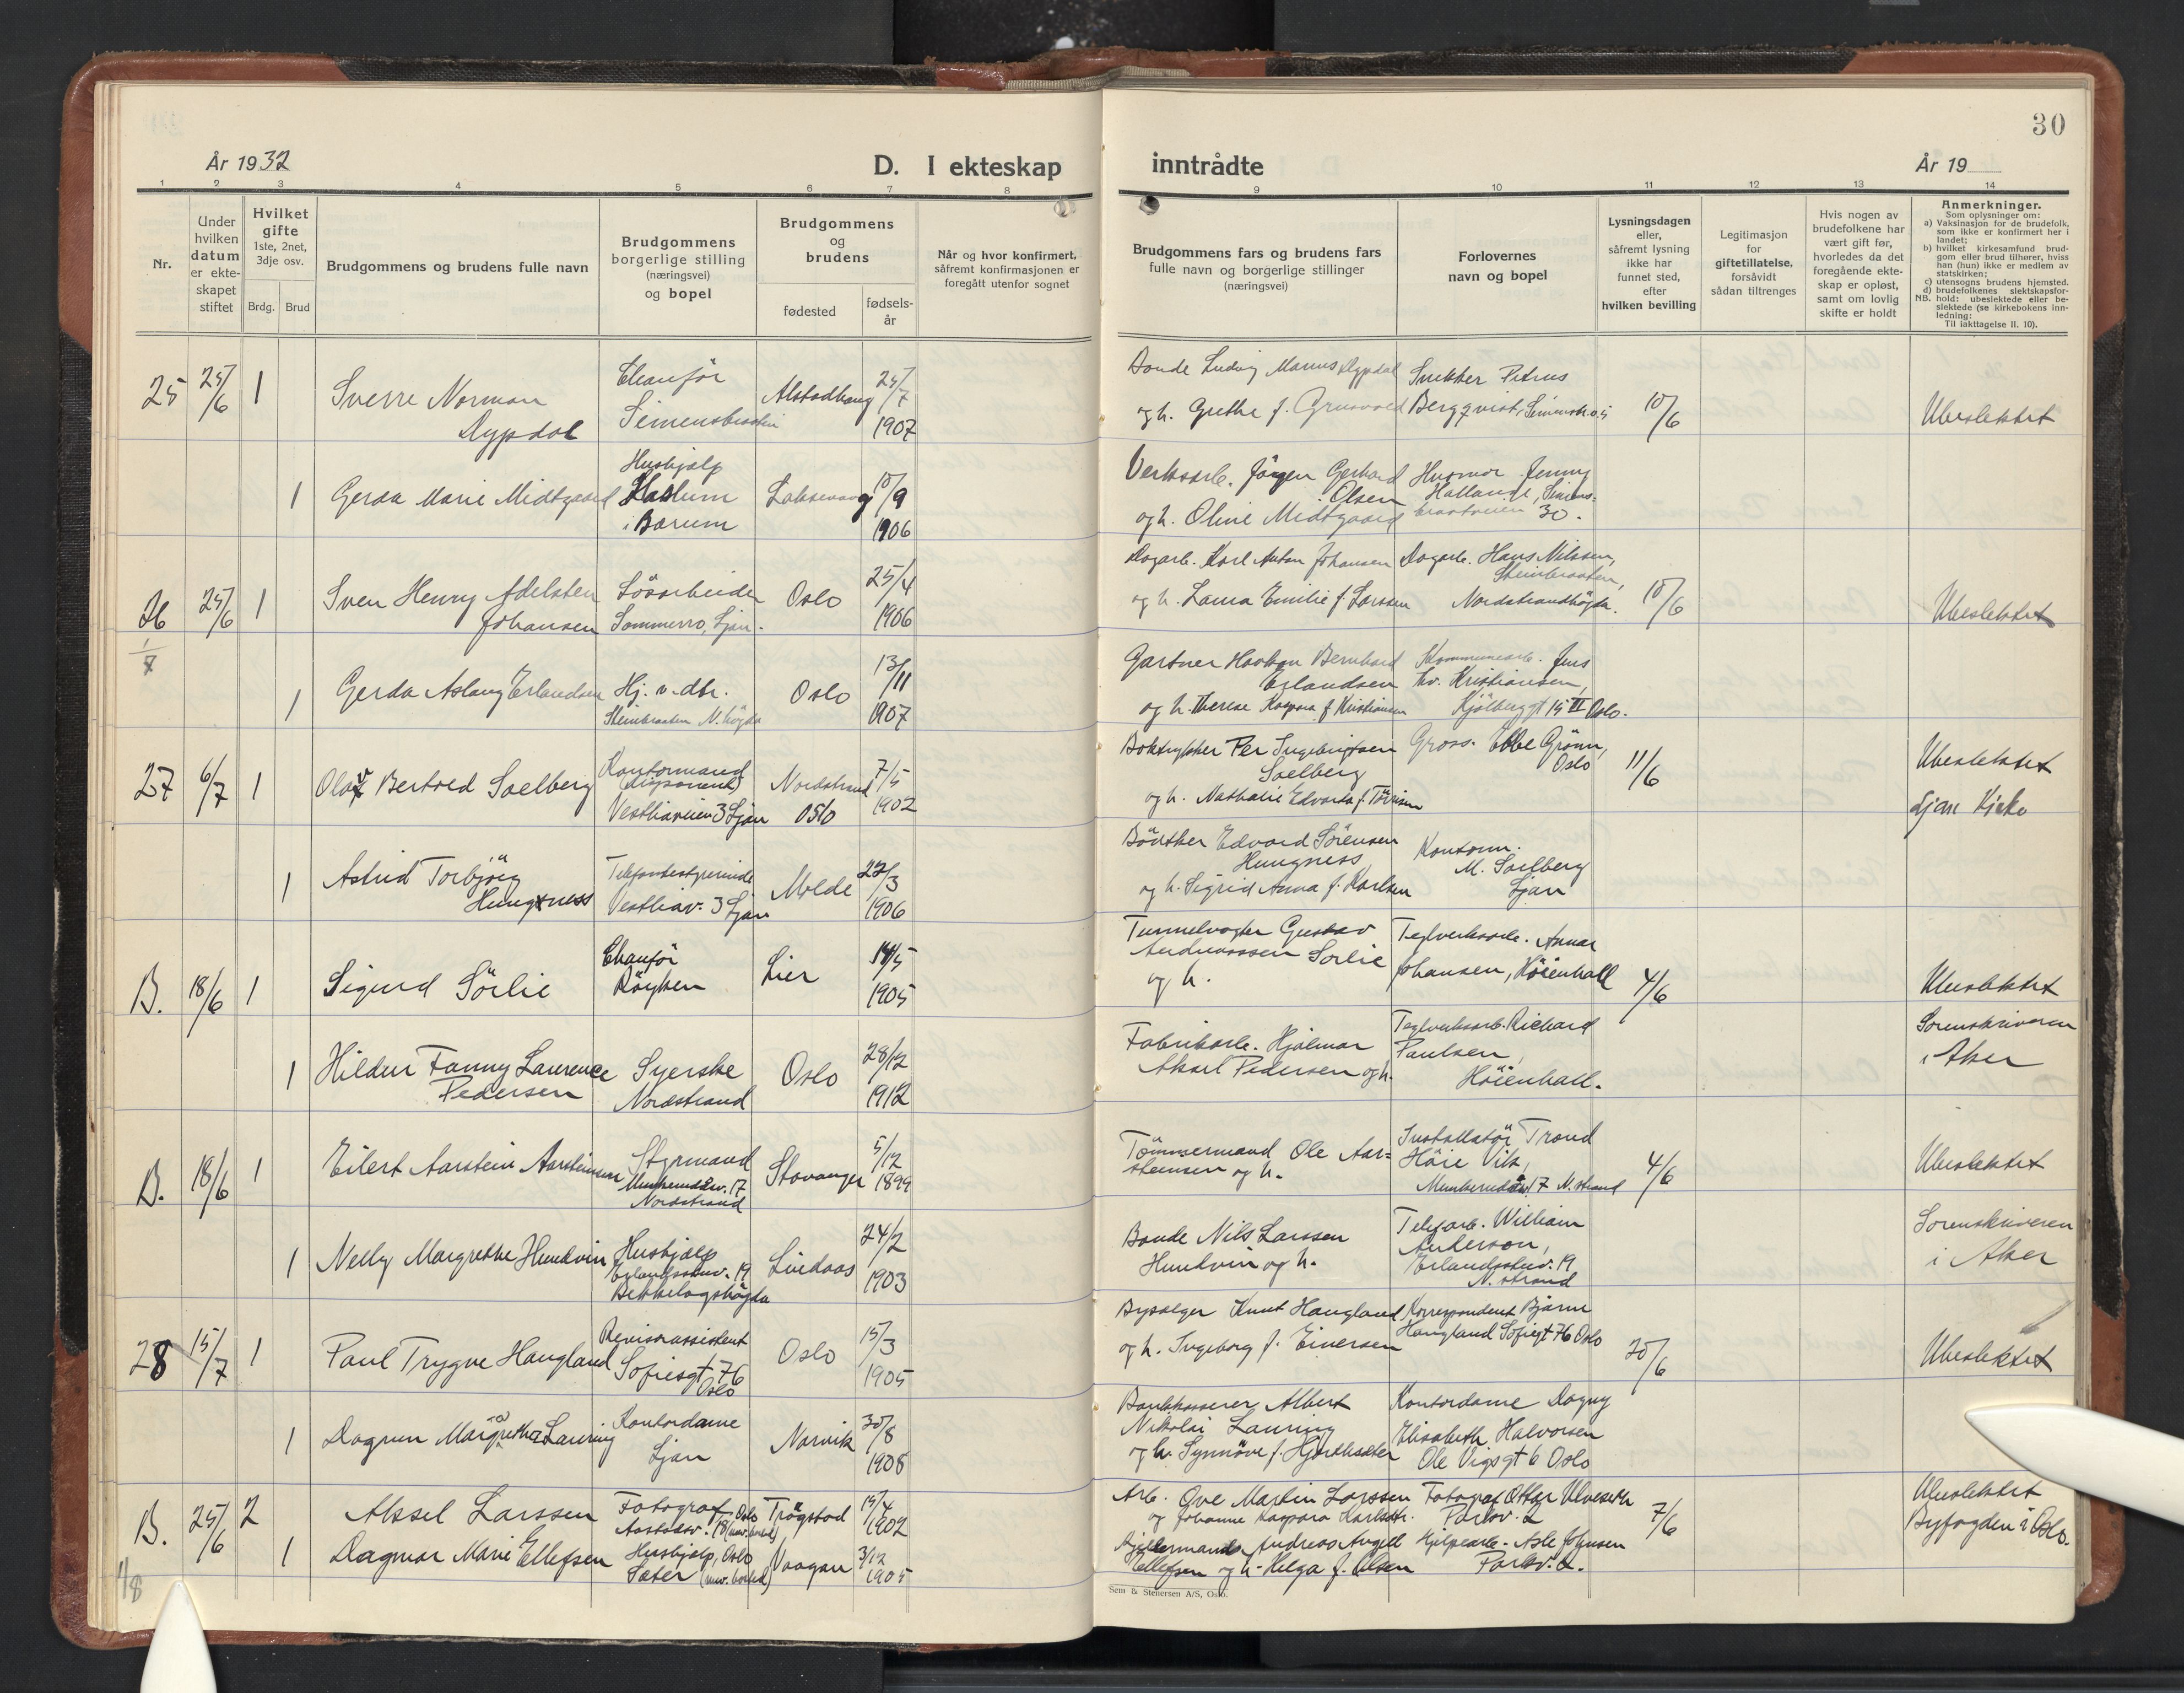 30
År 1932
D. I ekteskap
inntrådte
År 19
1 2 3 4 5 6 7 8
9 10 11 12 13 14
Nr.
Under hvilken datum er ekte-skapet stiftet
Hvilket gifte
1ste, 2net, 3dje osv.
Brdg. Brud
Brudgommens og brudens fulle navn
Brudgommens borgerlige stilling
(næringsvei)
og bopel
Brudgommens
og
brudens
fødested
fødsels-år
Når og hvor konfirmert,
såfremt konfirmasjonen er
foregått utenfor sognet
Brudgommens fars og brudens fars
fulle navn og borgerlige stillinger
(næringsvei)
Forlovernes
navn og bopel
Lysningsdagen
eller,
såfremt lysning
ikke har
funnet sted,
efter
hvilken bevilling
Legitimasjon
for
giftetillatelse,
forsåvidt
sådan tiltrenges
Hvis nogen av
brudefolkene har
vært gift før,
hvorledes da det
foregående ekte-
skap er opløst,
samt om lovlig
skifte er holdt
Anmerkninger.
Som oplysninger om:
a) Vaksinasjon for de brudefolk,
som ikke er konfirmert her i
landet;
b) hvilket kirkesamfund brud-
gom eller brud tilhører, hviss
han (hun) ikke er medlem av
statskirken;
c) utensogns brudens hjemsted.
d) brudefolkenes slektskapsfor-
NB. hold: ubeslektede eller be-
slektede (se kirkebokens inn-
ledning:
Til iakttagelse II. 10).
25 25/6 1
Sverre Norman
Dypdal
Chauför
Alstadhaug
1907
Bonde Ludvig Marius Dypdal
og h. Grethe f.
Snekker Petrus
Bergqvist,
10/6
Ubeslektet
1 Gerda Marie Midtgaard
Hushjælp
Haslum
i Bærum
Laksevaag
10/9
1906
Verksarb. Jörgen Gerhard
Olsen
og h. Oline Midtgaard
Husmor Jenny
30.
26 25/6 1
Sven Henry Adelsten
Johansen
Lösarbeider
Sommerro, Ljan.
Oslo
25/4
1906
Dagarb. Karl Anton Johansen
og h. Laura Emilie f. Larssen
Dagarb. Hans Nilssen,
Steinbraaten,
Nordstrandhögda.
10/6
Ubeslektet
1 Gerda Aslaug Erlandsen
Hj. v. dtr.
Steinbraaten N.högda
Oslo
13/11
1907
Gartner Haakon Bernhard
Erlandsen
og h. Therese Kaspara f. Kristiansen
Kommunearb. Jens
Kristiansen,
Kjölberggt 15 II Oslo.
27 6/7 1
Olav Bertord Soelberg
Kontormand
(disponent)
Vestliaveien 3 Ljan
Nordstrand
Oslo
7/5
1902
Boktrykker Per Ingebrigtsen
Soelberg
og h. Nathalie Edvarda f.
Gross. Ebbe Grönn,
Oslo
11/6
Ubeslektet
Ljan Kirke
1 Astrid Torbjörg
Hungness
Vestliav. 3 Ljan
Molde
22/3
1906
Edvard Sörensen
Hungness
og h. Sigrid Anna f. Karlsen
Kontorm.
M. Soelberg
Ljan
B. 18/6 1
Sigurd Sörlie
Chauför
Röyken
Lier
14/5
1905
Tunnelvogter Gustav
Andreassen Sorlie
og h.
Teglverksarb. Annar
Johansen, Höienhall
4/6
Ubeslektet
Sorenskriveren
i Aker
1 Hildur Fanny Laurence
Pedersen
Syerske
Nordstrand
Oslo
28/12
1912
Fabrikarb. Hjalmar
Aksel Pedersen og h.
Teglverksarb. Richard
Paulsen,
Höienhall.
B. 18/6 1
Eilert Aarstein Aarsteinsen
Styrmand
Munkerudsv. 17
Nordstrand
Stavanger
5/12
1899
Tömmermand Ole Aar=
steinsen og h.
Installatör Trond
Höie Vik,
Munkerudsv. 17 N. strand
4/6
Ubeslektet
Sorenskriveren
i Aker
1 Nelly Margrethe Hundvin
Hushjælp
Erlandsstuv. 19
Bekkelagshögda
Lindaas
24/2
1903
Bonde Nils Larssen
Hundvin og h.
William
Anderson,
Erlandsstuv. 19
N. strand
28 15/7 1
Paul Trygve Haugland
Revisorassistent
Sofiesgt 76
Oslo
Oslo
15/3
1905
Bysælger Knut Haugland
og h. Ingeborg f. Einersen
Korrespondent Bjarne
Haugland Sofiegt 76 Oslo
20/6
Ubeslektet
1 Dagrun Margretha Lauring
Kontordame
Ljan
Narvik
30/8
1908
Bankkasserer Albert
Nikolai Lauring
og h. Synnöve f.
Kontordame Dagny
Elisabeth Halvorsen
Ole Vigsgt 6 Oslo
B. 25/6 2
Aksel Larssen
Fotograf, Oslo
Trögstad
15/4
1902
Arb. Ove Martin Larssen
og Johanne Kaspara Karlsdtr.
Fotograf Ottar Ulveseth
Parkv. 2
7/6
Ubeslektet
Byfogden i Oslo.
1 Dagmar Marie Ellefsen
Hushjælp, Oslo
Sæter (nuv. bosted)
Vaagan
3/12
1905
Andreas August
Ellefsen og h. Helga f. Olsen
Hjelpearb. Asle Johnsen
Parkv. 2.
Sem & Stenersen A/S, Oslo.